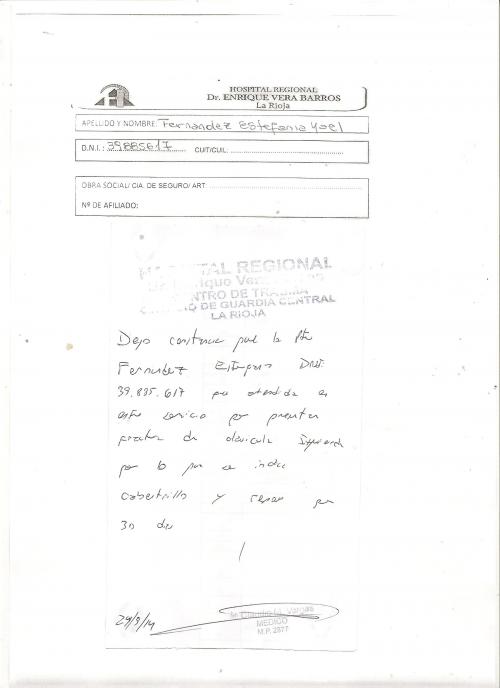 HOSPITAL REGIONAL
Dr. ENRIQUE VERA BARROS
La Rioja
APELLIDO Y NOMBRE: Fernandez Estefania Yael
D.N.I.: 39885617 CUIT/CUIL:
OBRA SOCIAL/ CIA. DE SEGURO/ ART:
Nº DE AFILIADO:
HOSPITAL REGIONAL
Enrique Vera
CENTRO DE TRAUMA
DE GUARDIA CENTRAL
LA RIOJA
Dejo constancia que la Pte
Fernandez Estefania DNI:
39.885.617 fue atendida en
este servicio por presentar
fractura de clavicula Izquierda
por lo que se indica
Cabestrillo y reposo por
30 dias
29/9/14
Claudio M. Vargas
MEDICO
M.P. 2877